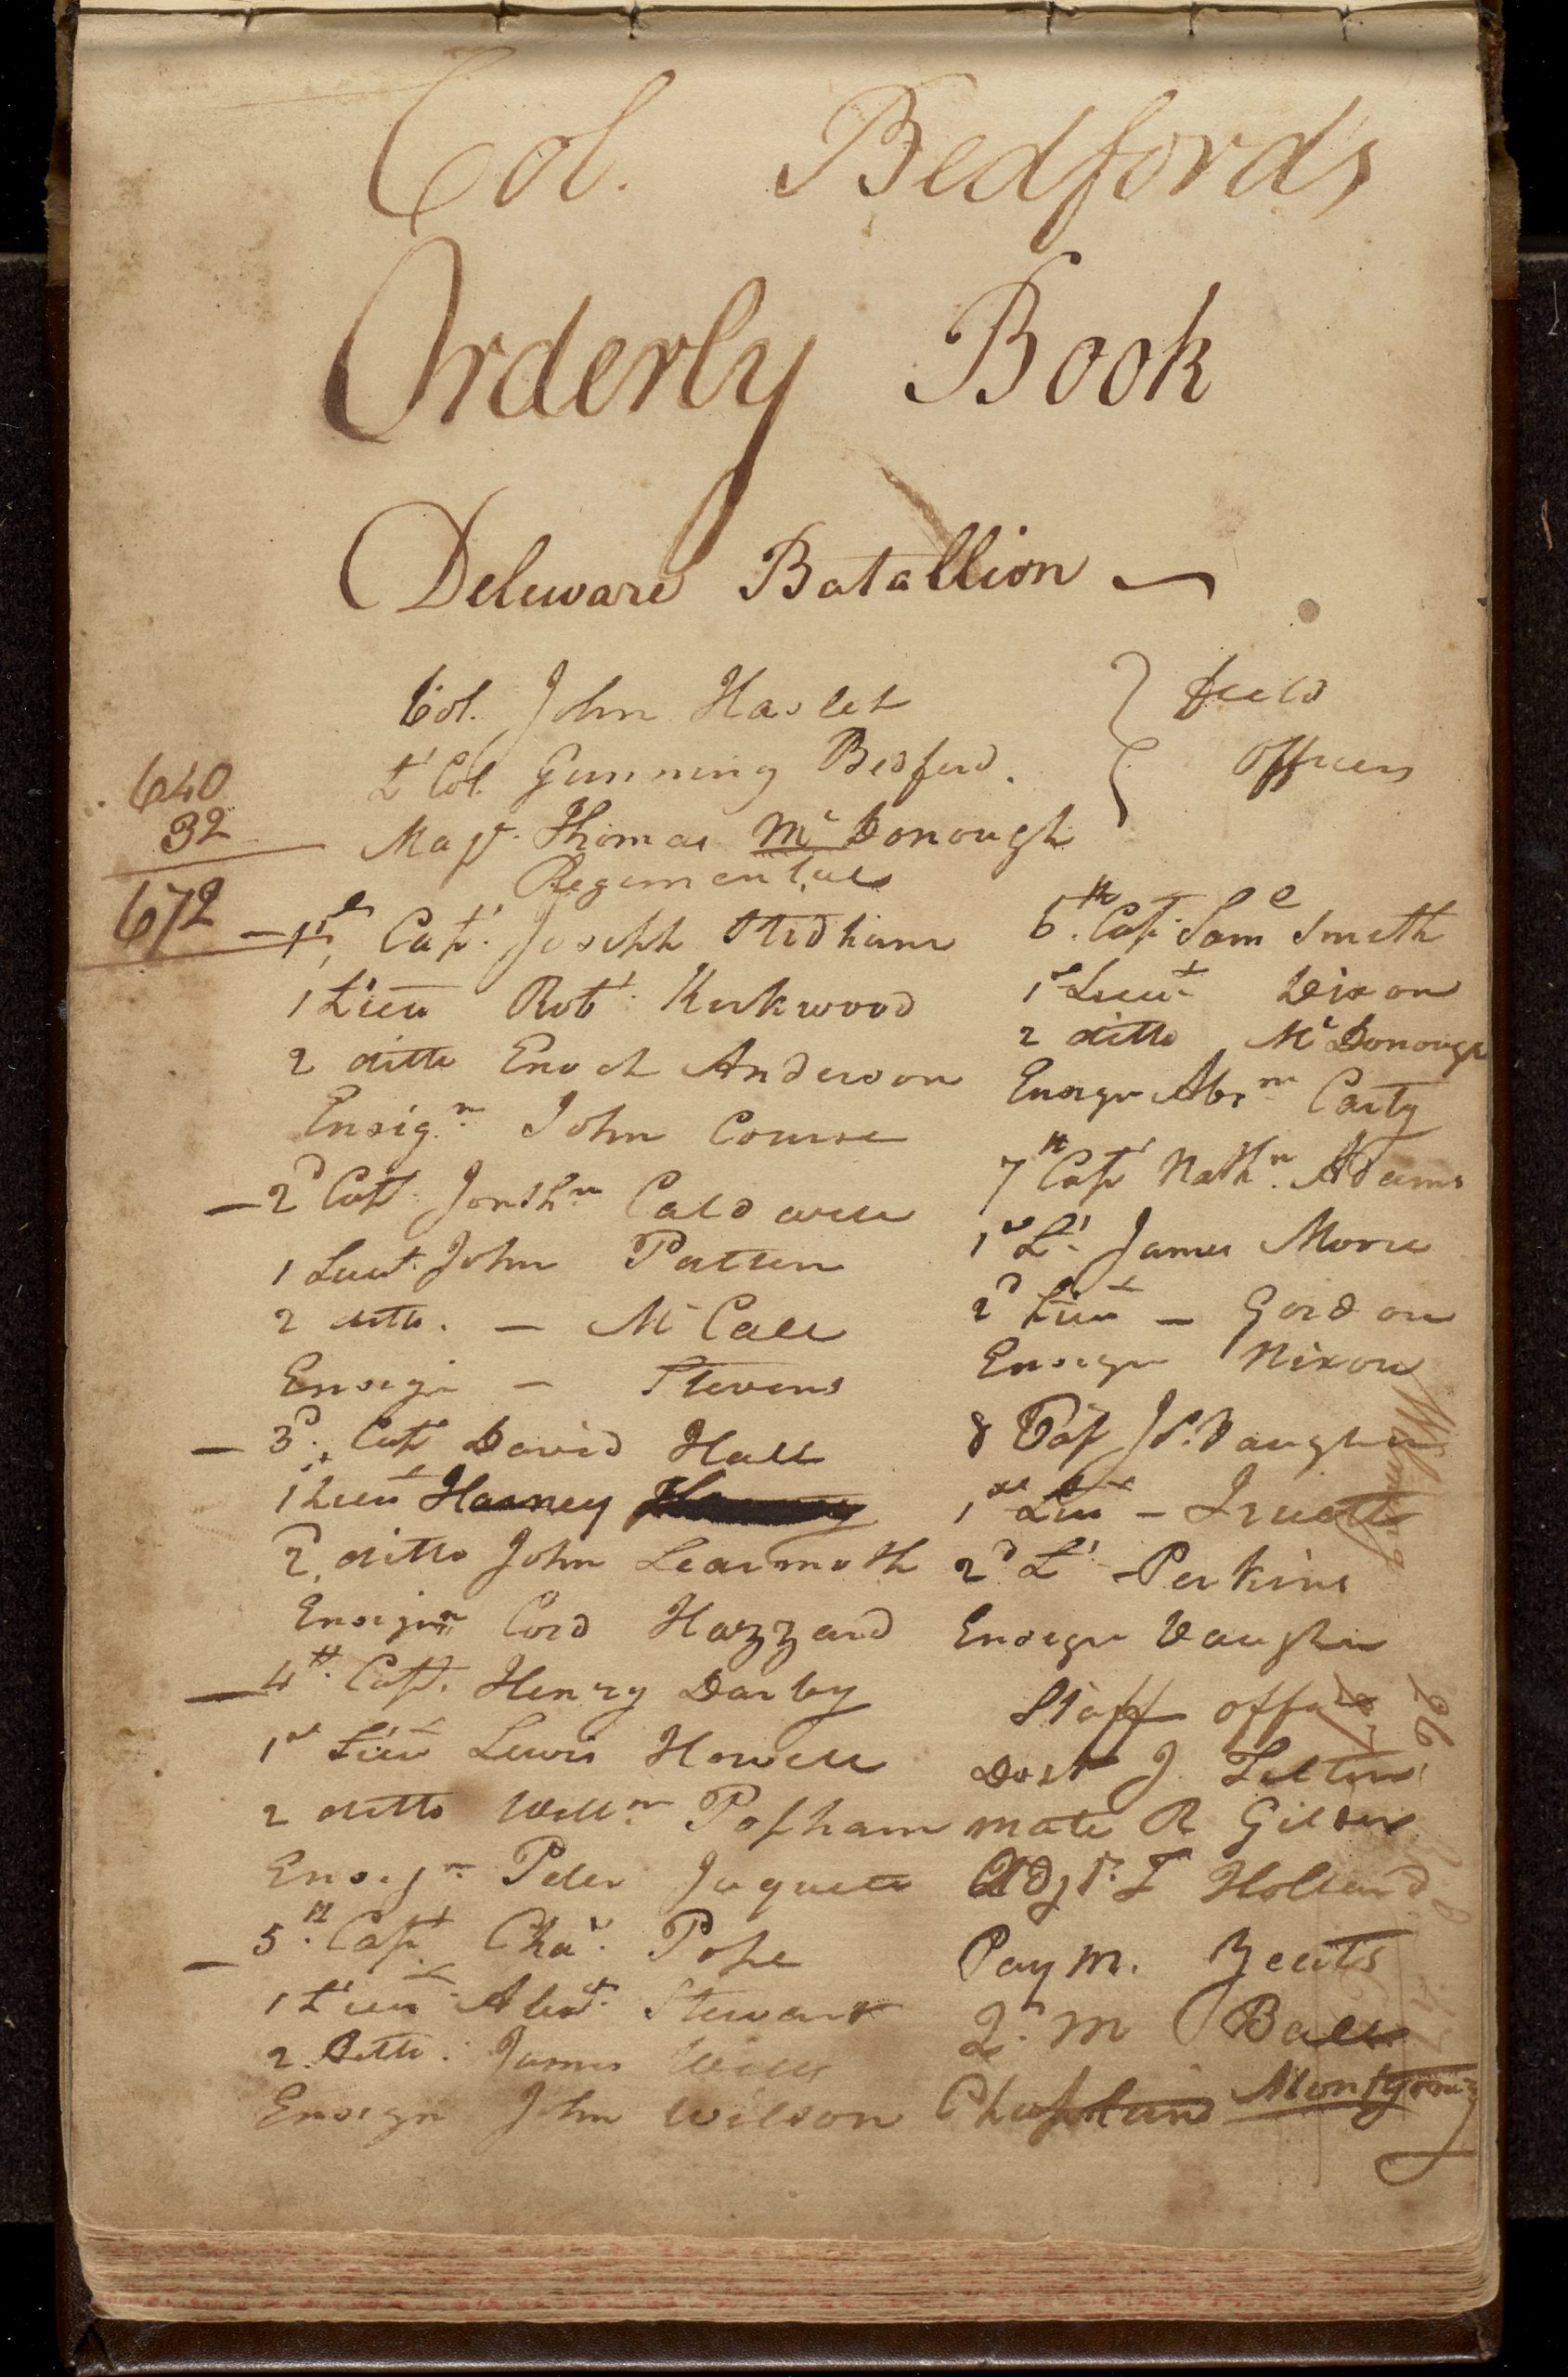 Col. Bedfords
Orderly Book
Deleware Batallion
Col. John Haslet
Lt Col. Gunning Bedford.
field
Officers
Majr. Thomas Mc Donough
Regimental
640
32
672
1st, Capt. Joseph Stidham
1 Lieut Robt. Kirkwood
2 ditto Enoch Anderson
Ensign John Course
2d Capt. Jonthn Caldwell
1 Lieut. John Patten
2 ditto. - Mc Call
Ensign - Stevens
3d. Capt David Hall
1st Lieut Harney
2, ditto John Learmoth
Ensign Cord Hazzard
4th. Capt. Henry Darby
1st Lieut Lewis Howell
2 ditto Willm. Popham
Ensign Peter Jaquett
5th. Capt. Chas. Pope
1 Lieut Alexr. Stewart
2. ditto. James Wells
Ensign John Wilson
6th. Capt Saml Smith
1st Lieut Dixon
2 ditto McDonough
Ensign Abrm Carty
7th Capt Nathn. Adams
1st Lt. James Moore
2d Lieut - Gordon
Ensign Nixon
8 Capt Js. Vaughan
1st Lieut - Truett
2d Lt - Perkins
Ensign Vaughan
Staff
Doctr J. Tilton
mate R Gilder
Adjt. T Holland
Pay M. Yeats
Qr. M Ball
Chaplain Montgomery